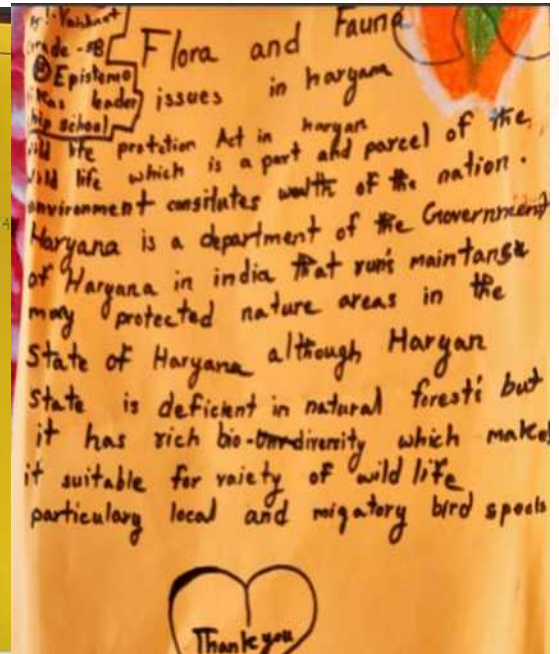 Grade - 8B
Epistemo
leader
ship school
Flora and Fauna
issues in haryana
wild life protetion Act in haryan
wild life which is a part and parcel of the
environment consitutes wealth of the nation.
Haryana is a department of the Government
of Haryana in india that run's maintanse
many protected nature areas in the
State of Haryana although Haryan
State is deficient in natural forest's but
it has rich bio-diversity which makes
it suitable for vaiety of wild life
particulary local and migatory bird specis
Thank you